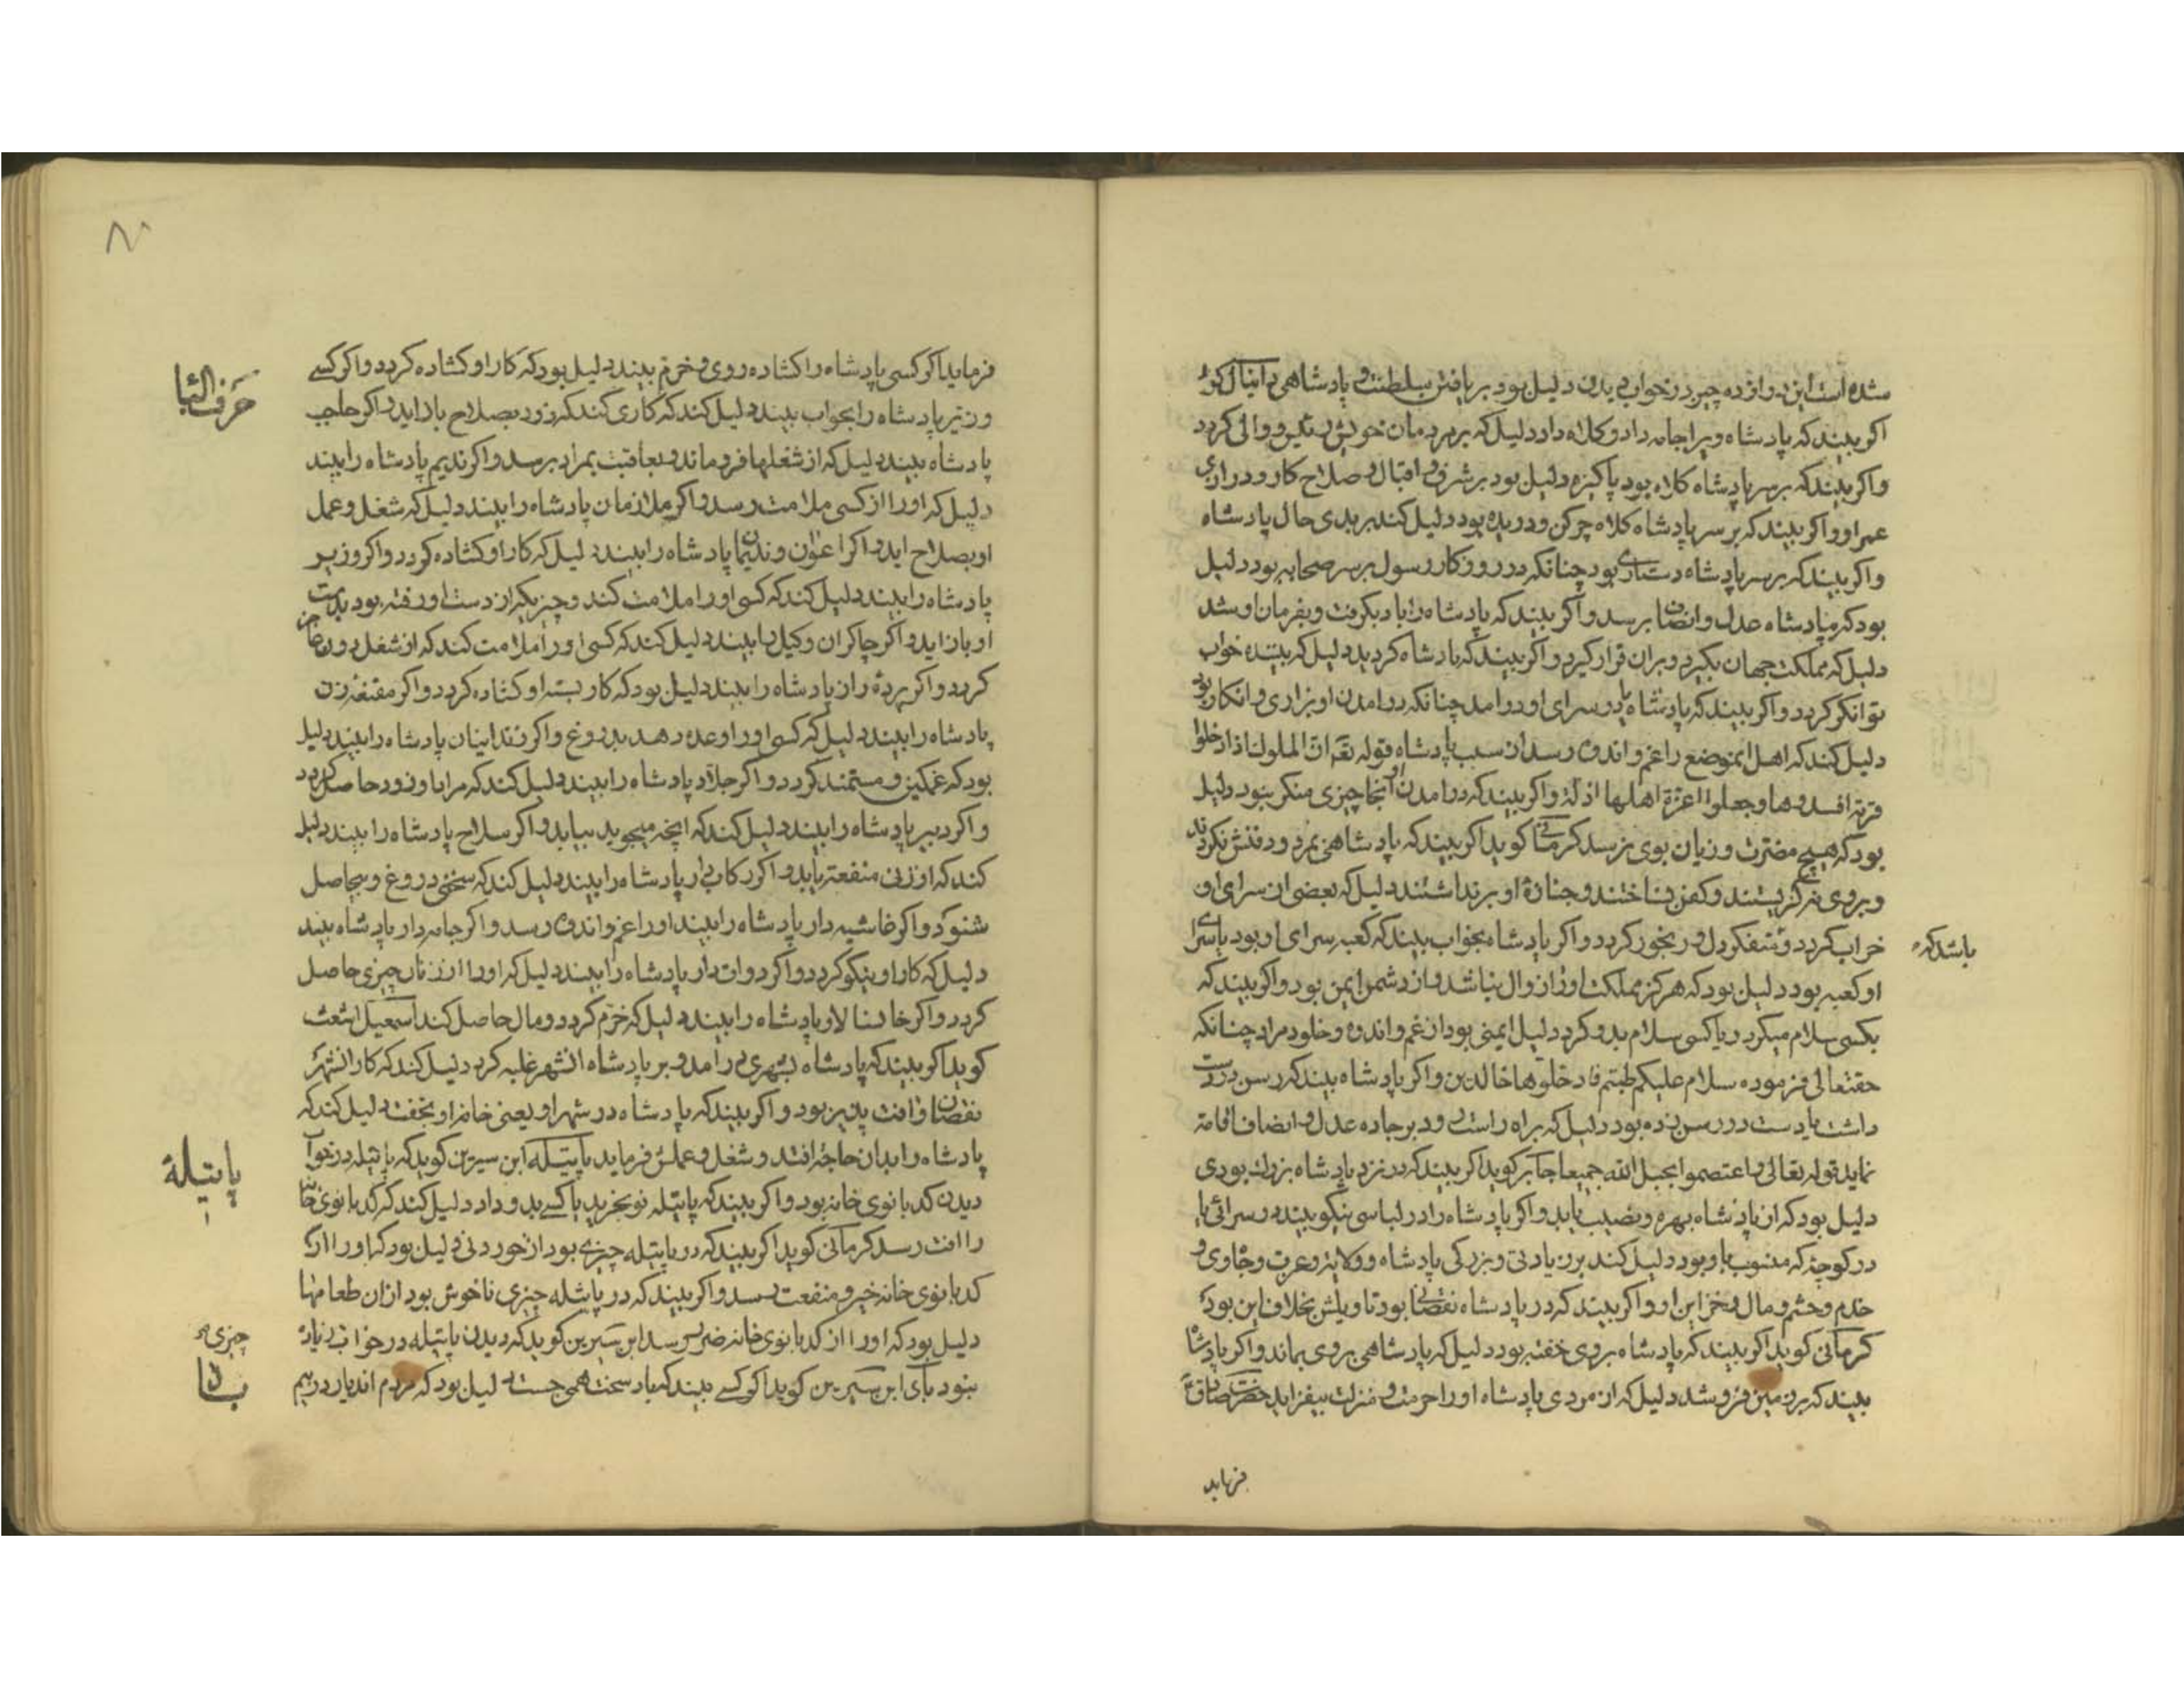 شده است این دوازده چیز در خواب دیدن دلیل بود بر یافتن سلطنت و پادشاهی دانیال کوید
اکر بیند که پادشاه ویرا جامه داد و کلاه داد دلیل که بر مردمان خویش رئیس و والی کردد
واکر بیند که بر سر پادشاه کلاه بود پاکیزه دلیل بود بر شرف و اقبال و صلاح کار و درازی
عمر او واکر بیند که بر سر پادشاه کلاه چرکن و دریده بود دلیل کند بر بدی حال پادشاه
واکر بیند که بر سر پادشاه دستاری بود چنانکه در روزکار رسول بر سر صحابه بود دلیل
بود که پادشاه عدل و انصاف برسد واکر بیند که پادشاه را باد بکرفت و بفرمان او شد
دلیل که مملکت جهان بکیرد و بران قرار کیرد واکر بیند که پادشاه کردید دلیل که بیننده خواب
توانکر کردد واکر بیند که پادشاه در سرای او درامد چنانکه درامدن او بزاری و انکار بود
دلیل کند که اهل انموضع را غم و اندوه رسد از سبب پادشاه قوله تع ان الملوک اذا دخلوا
قریة افسدوها وجعلوا اعزة اهلها اذلة واکر بیند که درامدن او انجا چیزی منکر نبود دلیل
بود که هیچ مضرت و زیان بوی نرسد کرمانی کوید اکر بیند که پادشاهی بمرد و دفنش نکردند
و بروی نکریستند و کفن نساختند و جنازهٔ او برنداشتند دلیل که بعضی از سرای او
خراب کردد و متفکردل و رنجور کردد واکر پادشاه بخواب بیند که کعبه سرای او بود یا سرای
باشد که
او کعبه بود دلیل بود که هرکز مملکت او را زوال نباشد و از دشمن ایمن بود واکر بیند که
بکسی سلام میکرد و یا کسی سلام بدو کرد دلیل ایمنی بود از غم و اندوه و خلود مراد چنانکه
حقتعالی فرموده سلام علیکم طبتم فادخلوها خالدین واکر پادشاه بیند که رسن در دست
داشت یا دست در رسن زده بود دلیل که براه راست رود بر جاده عدل و انصاف اقامة
نماید قوله تعالی واعتصموا بحبل الله جمیعا جابر کوید اکر بیند که در نزد پادشاه بزرک بودی
دلیل بود که از پادشاه بهره و نصیب یابد واکر پادشاه را در لباسی نیکو بیند در سرائی یا
در کوچهٔ که منسوب باو بود دلیل کند بر زیادتی و بزرکی پادشاه و ولایت و عزت و جاه وی و
خدم و حشم و مال و خزاین او واکر بیند که در پادشاه نقصانی بود تاویلش بخلاف این بود
کرمانی کوید اکر بیند که پادشاه بروی خفته بود دلیل که پادشاهی بروی بماند واکر پادشاه
بیند که بر زمین فرو شد دلیل که از مردی پادشاه او را حرمت و منزلت بیفزاید حضرت صادق
فرماید
۸۰
فرماید اکر کسی پادشاه را کشاده روی و خرم بیند دلیل بود که کار او کشاده کردد واکر کسی
حرف الیا
وزیر پادشاه را بخواب بیند دلیل کند که کاری کند که زود بصلاح باز اید واکر حاجب
پادشاه بیند دلیل که از شغلها فروماند و بعاقبت بمراد برسد واکر ندیم پادشاه را بیند
دلیل که او را از کسی ملامت رسد واکر ملازمان پادشاه را بیند دلیل که شغل و عمل
او بصلاح اید واکر اعوان و ندیمان پادشاه را بیند دلیل که کار او کشاده کردد واکر وزیر
پادشاه را بیند دلیل کند که کسی او را ملامت کند و چیزیکه از دست او رفته بود بدست
او باز اید واکر چاکران وکیل را بیند دلیل کند که کسی او را ملامت کند که از شغل دون عاجز
کردد واکر پردهٔ دار پادشاه را بیند دلیل بود که کار بسته او کشاده کردد واکر مقنعه زن
پادشاه را بیند دلیل که کسی او را وعده دهد بدروغ واکر زندانبان پادشاه را بیند دلیل
بود که غمکین و مستمند کردد واکر جلاد پادشاه را بیند دلیل کند که مراد او زود حاصل کردد
واکر دبیر پادشاه را بیند دلیل کند که انچه میجوید بیابد واکر سلاح پادشاه را بیند دلیل
کند که از زنی منفعت یابد واکر رکاب دار پادشاه را بیند دلیل کند که سخنی دروغ و بیحاصل
شنود واکر غاشیه دار پادشاه را بیند او را غم و اندوه رسد واکر جامه دار پادشاه بیند
دلیل که کار او نیکو کردد واکر دوات دار پادشاه را بیند دلیل که او را از زنان چیزی حاصل
کردد واکر خانسالار پادشاه را بیند دلیل که خرم کردد و مال حاصل کند اسمعیل اشعث
کوید اکر بیند که پادشاه بشهری درامد و بر پادشاه انشهر غلبه کرد دلیل کند که کار انشهر
نقصان و افت پذیر بود واکر بیند که پادشاه در شهر او یعنی خانه او بخفت دلیل کند که
پادشاه را بدان حاجة افتد و شغل و عملش فرماید پاتیله ابن سیرین کوید که پاتیله در خواب
پاتیلة
دیدن کدبانوی خانه بود واکر بیند که پاتیله نو بخرید یا کسی بدو داد دلیل کند که کدبانوی خانه
را افت رسد کرمانی کوید اکر بیند که در پاتیله چیزی بود از خوردنی دلیل بود که او را از
کدبانوی خانه خیر و منفعت رسد واکر بیند که در پاتیله چیزی ناخوش بود از ان طعامها
دلیل بود که او را از کدبانوی خانه ضرر رسد ابن سیرین کوید که دیدن پاتیله در خواب زیاد
چیزی
نبود بای ابن سیرین کوید اکر کسی بیند که باد سخت همی جست دلیل بود که مردم اندیار در بیم
باد